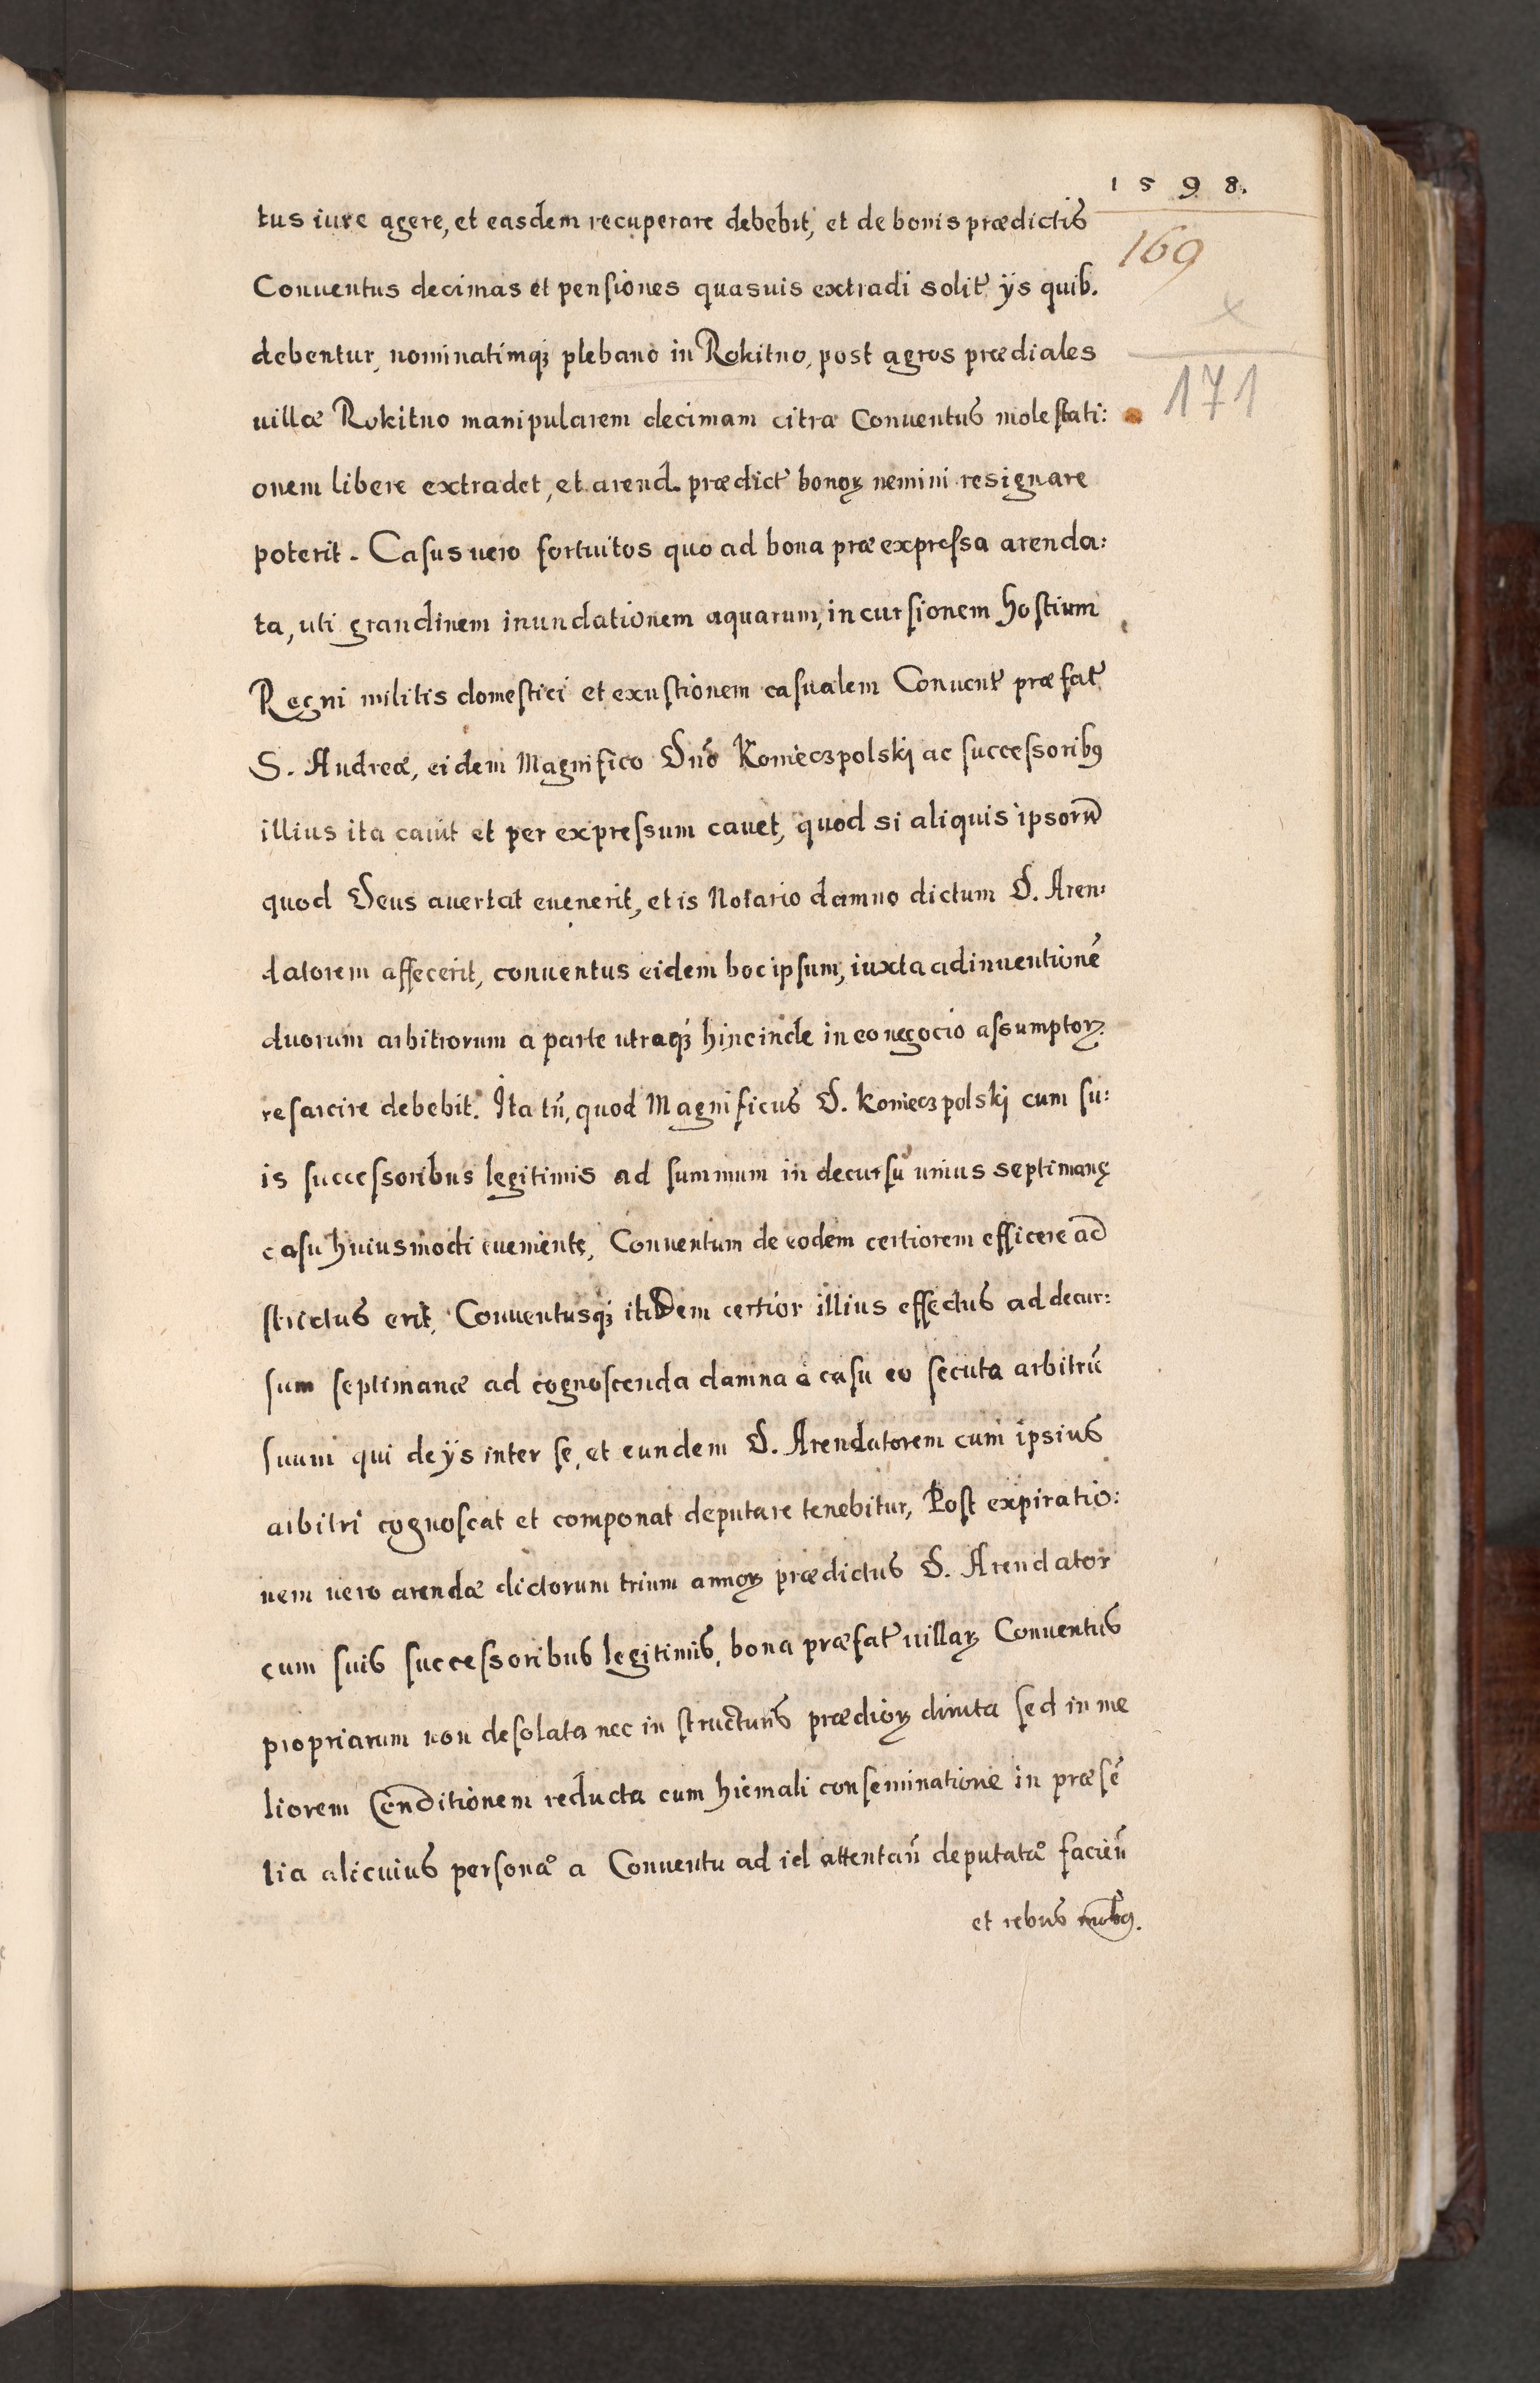 1598.
169
171
tus iure agere, et easdem recuperare debebit, et de bonis prædictis
Conuentus decimas et pensiones quasuis extradi solit' ÿs quib.
debentur, nominatimqꝫ plebano in Rokitno, post agros prædiales
uillæ Rokitno manipularem decimam citra Conuentus molestati:
onem libere extradet, et arend. prædict' bonoꝝ nemini resignare
poterit. Casus uero fortuitos quo ad bona præexpressa arenda:
ta, uti grandinem inundationem aquarum, incursionem hostium
Regni militis domestici et exustionem casualem Conuent' præfat'
S. Andreæ, eidem Magnifico Dno Konieczpolskj ac successoribꝰ
illius ita cauit et per expressum cauet, quod si aliquis ipsorū
quod Deus auertat euenerit, et is Notario damno dictum D. Aren:
datorem affecerit, conuentus eidem hoc ipsum, iuxta adinuentionē
duorum arbitrorum a parte utraqꝫ hincinde in eo negocio assumptoꝝ
resarcire debebit. Ita tn̄, quod Magnificus D. Koniecz polskj cum su:
is successoribus legitimis ad summum in decursu unius septimanę
casu huiusmodi eueniente, Conuentum de eodem certiorem efficere ad
strictus erit, Conuentusqꝫ itidem certior illius effectus ad decur:
sum septimanæ ad cognoscenda damna e casu eo secuta arbitrū
suum qui de ÿs inter se, et eundem D. Arendatorem cum ipsius
arbitri cognoscat et componat deputare tenebitur, Post expiratio:
nem uero arendæ dictorum trium annoꝝ prædictus D. Arendator
cum suis successoribus legitimis, bona præfat' uillaꝝ Conuentus
propriarum non desolata nec in structuris prædioꝝ diruta sed in me
liorem Conditionem reducta cum hiemali conseminatione in præsē
tia alicuius personæ a Conuentu ad id attentan̄ deputatæ facien̄
et rebus